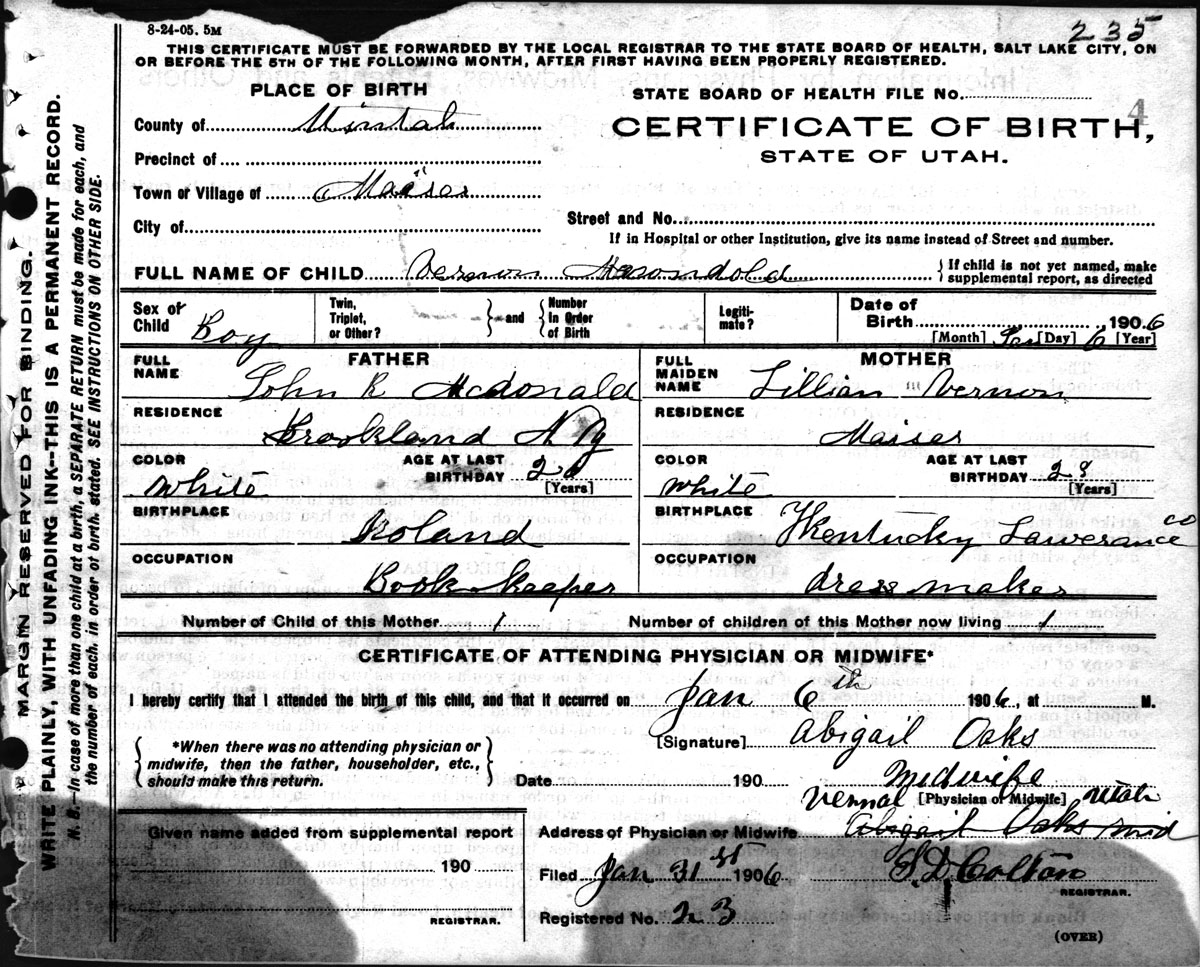 8-24-05. 5M
235
THIS CERTIFICATE MUST BE FORWARDED BY THE LOCAL REGISTRAR TO THE STATE BOARD OF HEALTH, SALT LAKE CITY, ON
OR BEFORE THE 5TH OF THE FOLLOWING MONTH, AFTER FIRST HAVING BEEN PROPERLY REGISTERED.
PLACE OF BIRTH
STATE BOARD OF HEALTH FILE No.
4
County of Uintah
CERTIFICATE OF BIRTH,
STATE OF UTAH.
Precinct of
Town or Village of Maiser
City of
Street and No.
If in Hospital or other Institution, give its name instead of Street and number.
FULL NAME OF CHILD Vernon
{ If child is not yet named, make
supplemental report, as directed
Sex of Child Boy
Twin, Triplet, or Other? } and { Number In Order of Birth
Legiti-mate?
Date of Birth , 1906
[Month] [Day] 6 [Year]
FATHER
FULL NAME John R Mcdonald
MOTHER
FULL MAIDEN NAME Lillian m Vernon
RESIDENCE Brookland N Y
RESIDENCE Maiser
COLOR White
AGE AT LAST BIRTHDAY [Years]
COLOR White
AGE AT LAST BIRTHDAY 28 [Years]
BIRTHPLACE
BIRTHPLACE Kentucky Lawerance co
OCCUPATION Book keeper
OCCUPATION dress maker
Number of Child of this Mother 1
Number of children of this Mother now living 1
CERTIFICATE OF ATTENDING PHYSICIAN OR MIDWIFE*
I hereby certify that I attended the birth of this child, and that it occurred on Jan 6th 1906, at M.
[Signature] Abigail Oaks
{ *When there was no attending physician or
midwife, then the father, householder, etc.,
should make this return. }
Date 190 Midwife
Vernal [Physician or Midwife] Utah
Given name added from supplemental report
190
REGISTRAR.
Address of Physician or Midwife Abigail Oaks mid
Filed Jan 31st 1906 S. D. Colton
REGISTRAR.
Registered No. 23
(OVER)
MARGIN RESERVED FOR BINDING.
WRITE PLAINLY, WITH UNFADING INK—THIS IS A PERMANENT RECORD.
N. B.—In case of more than one child at a birth, a SEPARATE RETURN must be made for each, and
the number of each, in order of birth, stated. SEE INSTRUCTIONS ON OTHER SIDE.